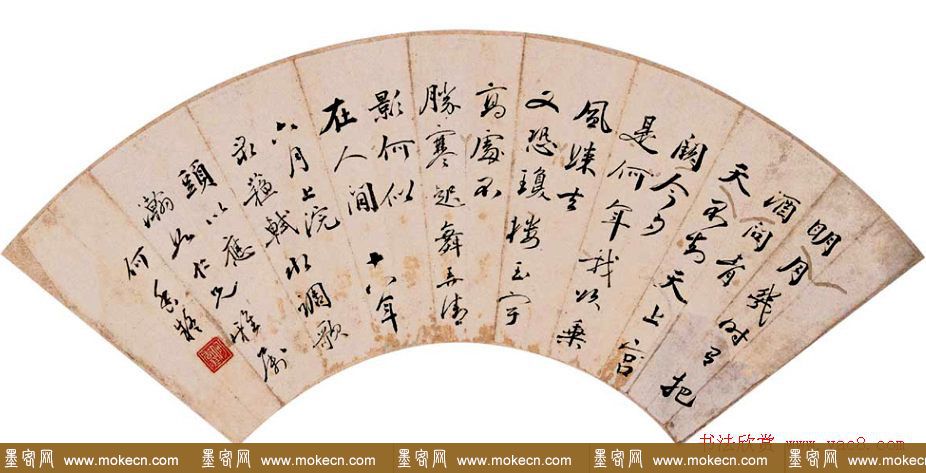 明月幾時有把
酒問青
天不知天上宮
闕今夕
是何年我欲乘
風歸去
又恐瓊樓玉宇
高處不
勝寒起舞弄清
影何似
在人間 十八年
六月上浣
录蘇軾水調歌
頭以應
瀚仁兄雅屬
何香凝
书法欣赏 www.yac8.com
墨客网 www.mokecn.com 墨客网 www.mokecn.com 墨客网 www.mokecn.com 墨客网 www.mokecn.com 墨客网 www.mokecn.com